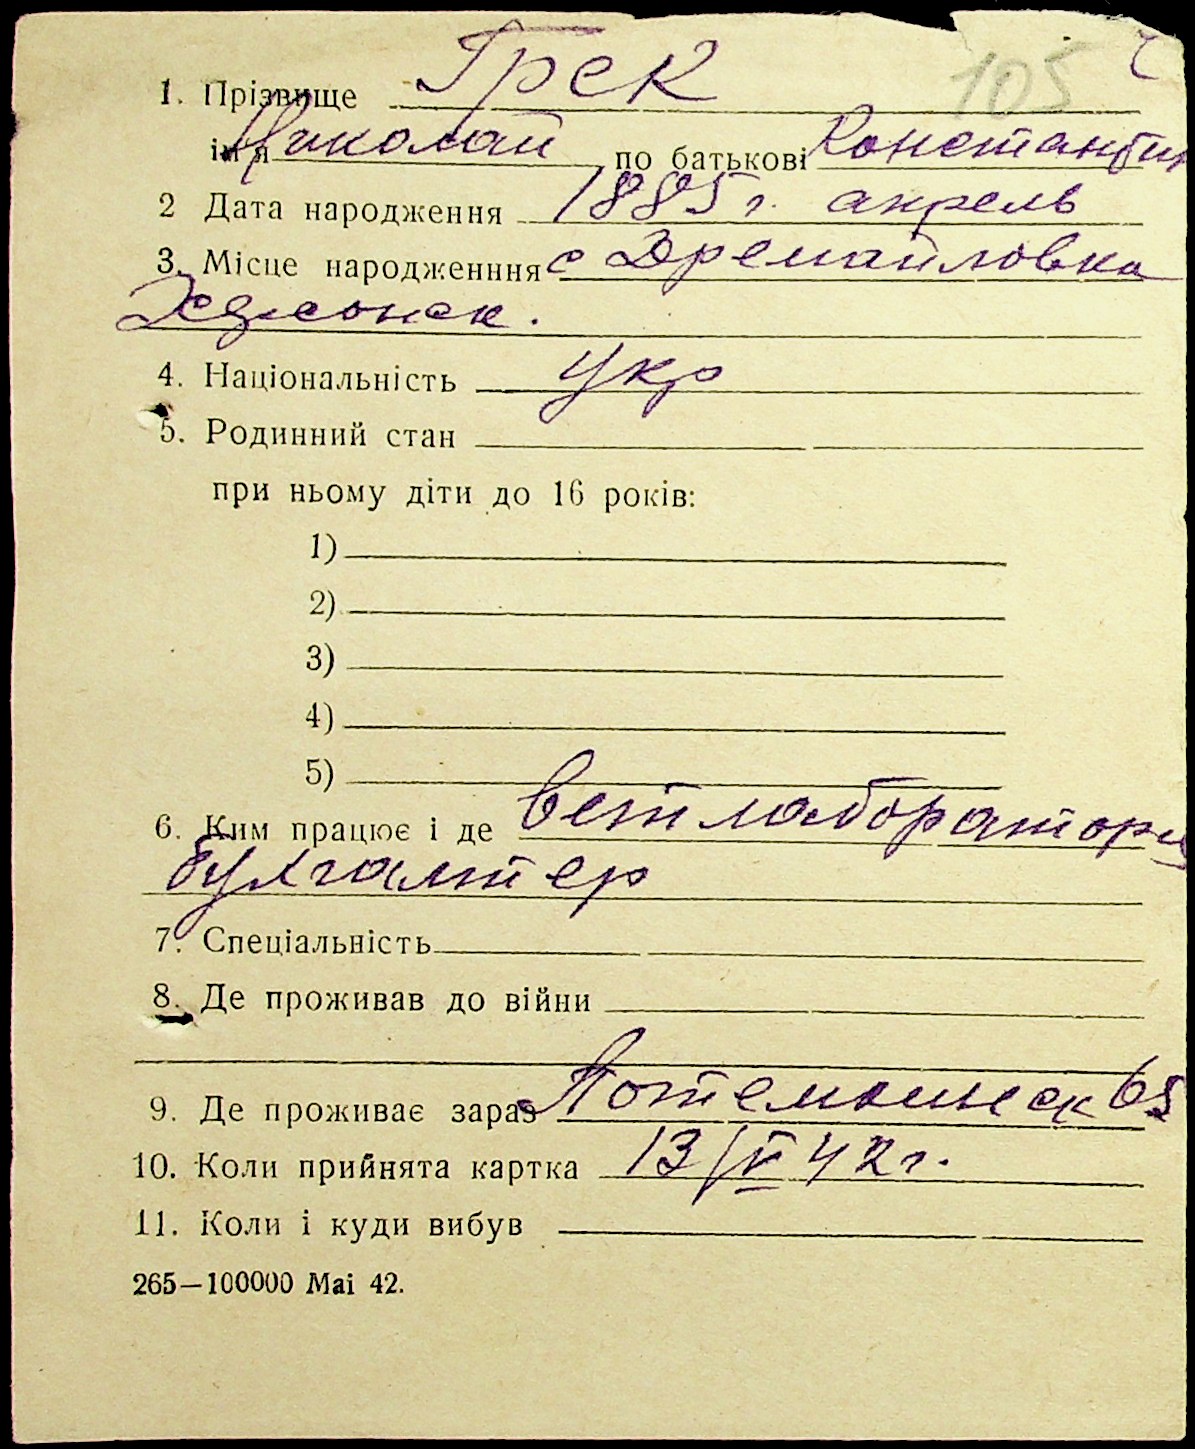 105
1. Прізвище Грек
ім'я Николай по батькові Константин
2 Дата народження 1885 г. апрель
3. Місце народженння с Дремайловка
Херсонск.
4. Національність укр
5. Родинний стан
при ньому діти до 16 років:
1)
2)
3)
4)
5)
6. Ким працює і де Ветлаборатория
бухгалтер
7. Спеціальність
8. Де проживав до війни
9. Де проживає зараз Потемкинск 65
10. Коли прийнята картка 13/V 42 г.
11. Коли і куди вибув
265—100000 Mai 42.